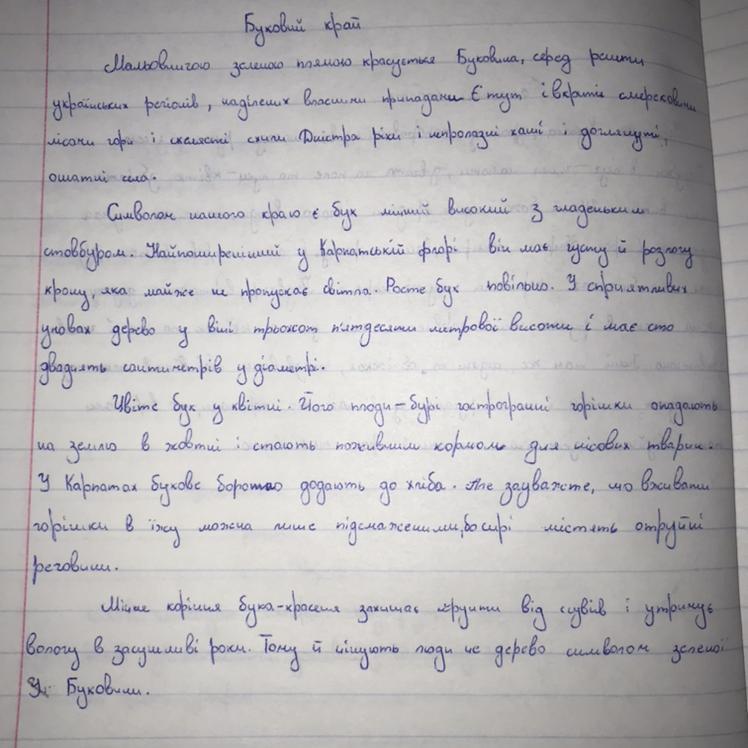 Буковий край
Мальовничою зеленою плямою красується Буковина, серед решти
українських регіонів, наділених власними принадами Є тут і вкриті смерековими
лісами гори і скелясті схили Дністра ріки і непролазні хащі і доглянуті,
ошатні села.
Символом нашого краю є бук міцний високий з гладеньким
стовбуром. Найпоширеніший у Карпатській флорі він має густу й розлогу
крону, яка майже не пропускає світла. Росте бук повільно. У сприятливих
умовах дерево у віці трьохсот п'ятдесяти метрової висоти і має сто
двадцять сантиметрів у діаметрі.
Цвіте бук у квітні. Його плоди – бурі гострогранні горішки опадають
на землю в жовтні і стають поживним кормом для лісових тварин.
У Карпатах букове борошно додають до хліба. Але зауважте, що вживати
горішки в їжу можна лише підсмаженими, бо сирі містять отруйні
речовини.
Міцне коріння бука-красеня захищає ґрунти від зсувів і утримує
вологу в засушливі роки. Тому й цінують люди це дерево символом зеленої
Буковини.